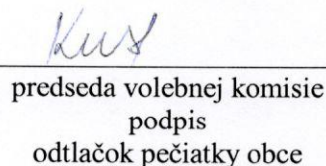 predseda volebnej komisie
podpis
odtlačok pečiatky obce